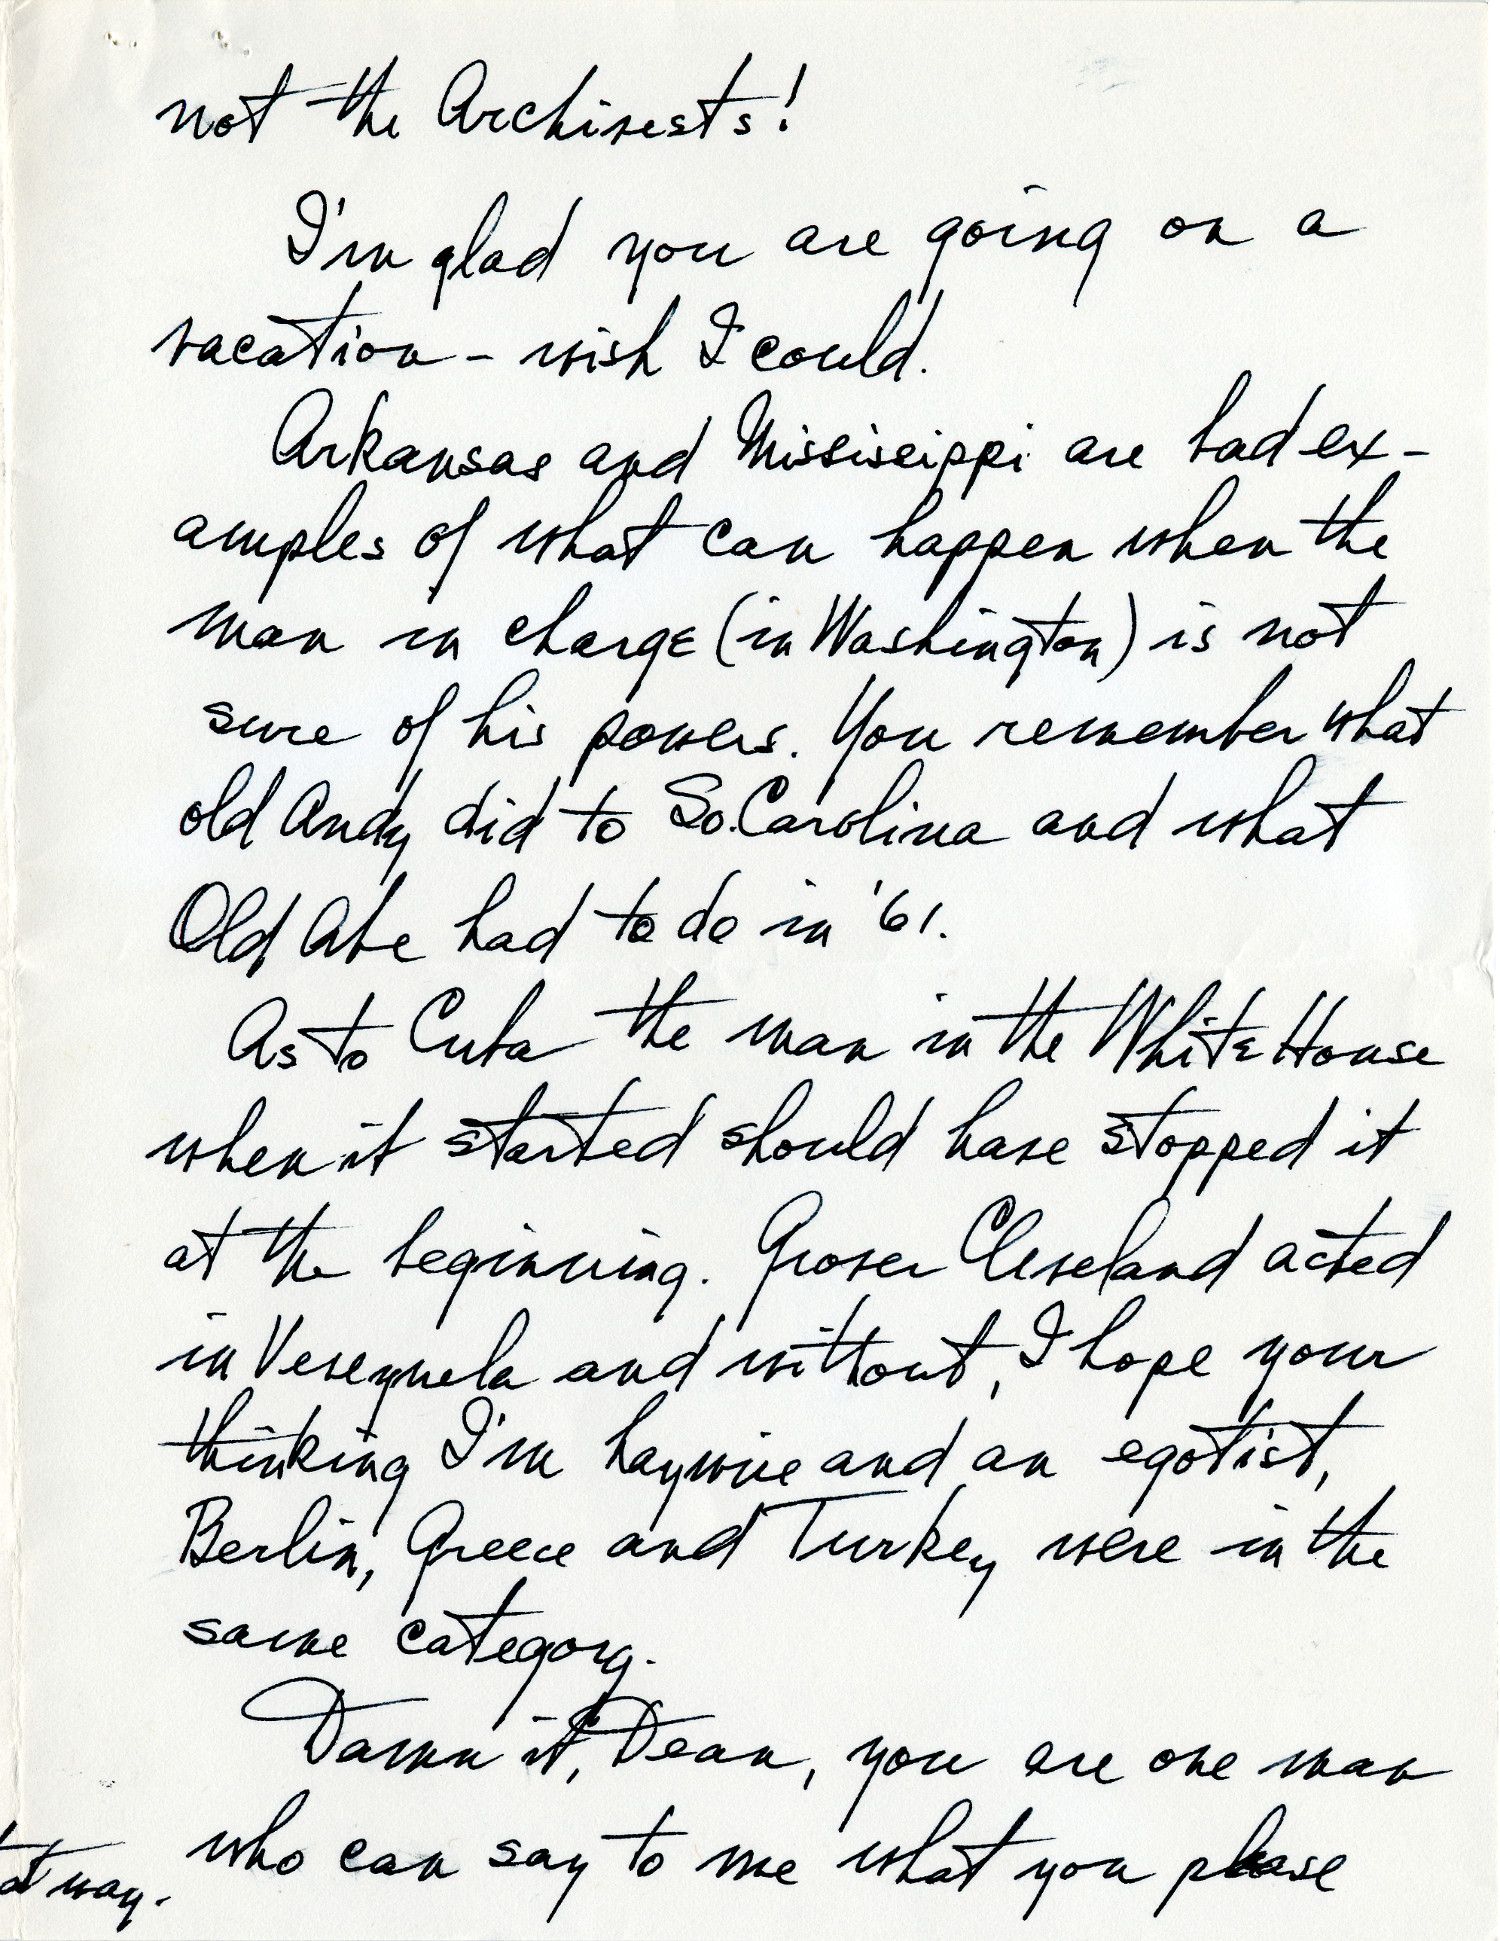 not the Archivests!
I'm glad you are going on a
vacation - wish I could.
Arkansas and Mississippi are bad ex-
amples of what can happen when the
man in charge (in Washington) is not
sure of his powers. You remember what
old Andy did to So. Carolina and what
Old Abe had to do in '61.
As to Cuba the man in the White House
when it started should have stopped it
at the beginning. Grover Cleveland acted
in Venezuela and without, I hope your
thinking I'm haywire and an egotist,
Berlin, Greece and Turkey were in the
same category.
Damn it, Dean, you are one man
who can say to me what you please
way.